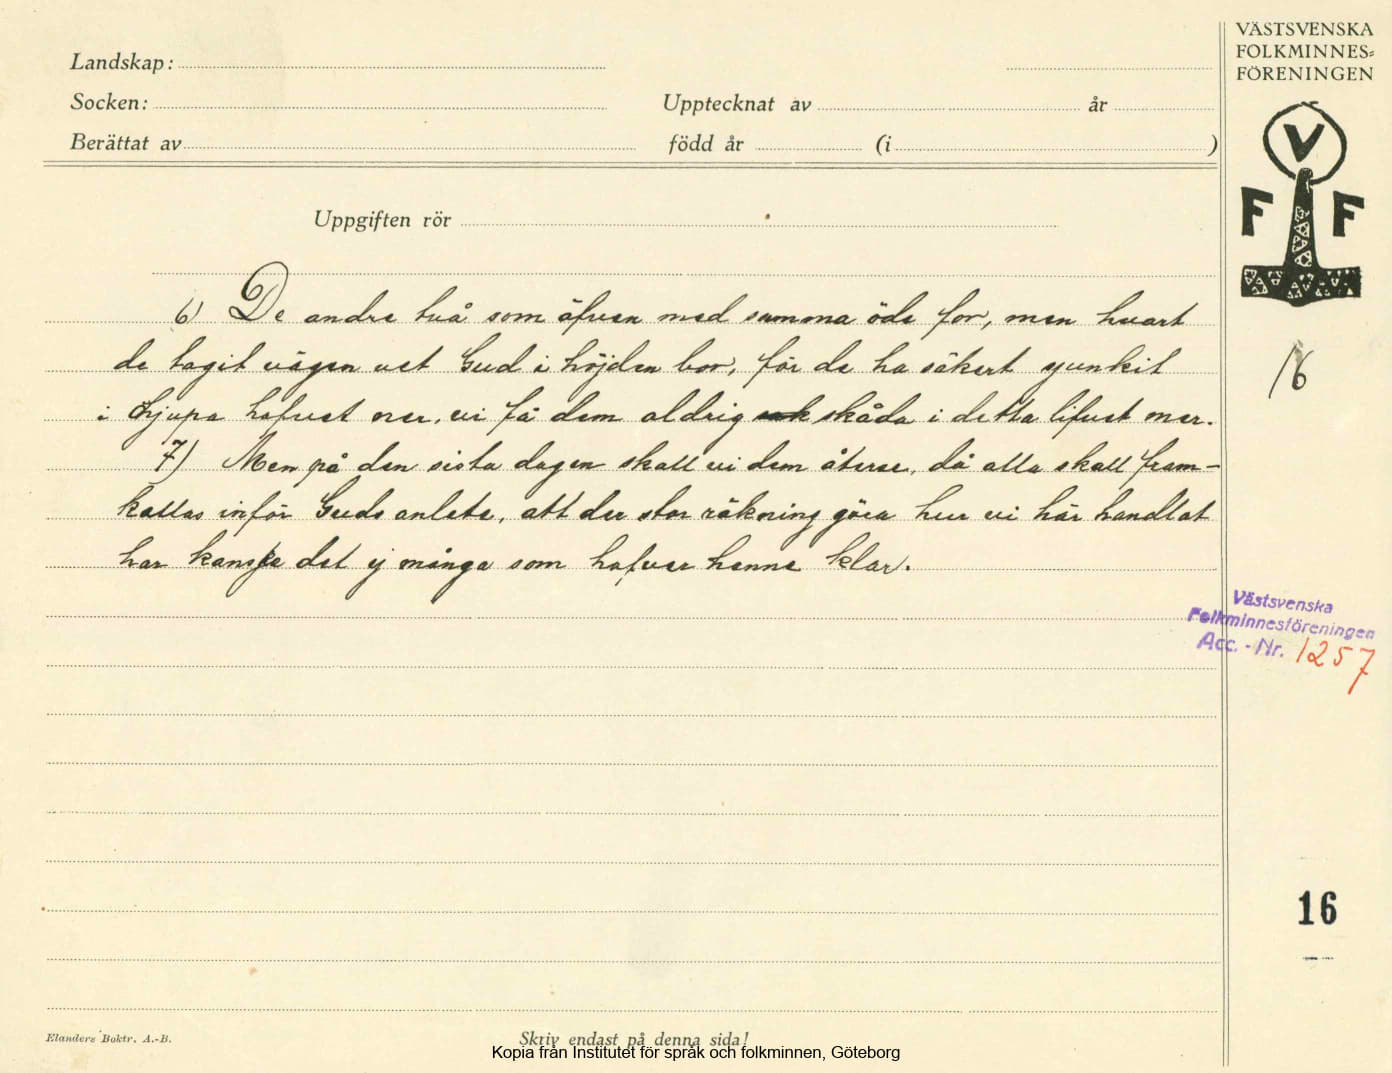 VÄSTSVENSKA
FOLKMINNES=
FÖRENINGEN
Landskap:
Socken: Upptecknat av år
Berättat av född år (i )
V
F F
Uppgiften rör
6) De andra två som äfven med samma öde for, men hvart
de tagit vägen vet Gud i höjden bor, för de ha säkert sjunkit
i djupa hafvet ner, vi få dem aldrig skåda i detta lifvet mer.
7) Men på den sista dagen skall vi dem återse, då alla skall fram-
kallas inför Guds anlete, att der stor räkning göra hur vi här handlat
har kanske det ej många som hafver henne klar.
16
Västsvenska
Folkminnesföreningen
Acc. - Nr. 1257
16
Elanders Boktr. A.-B.
Skriv endast på denna sida!
Kopia från Institutet för språk och folkminnen, Göteborg